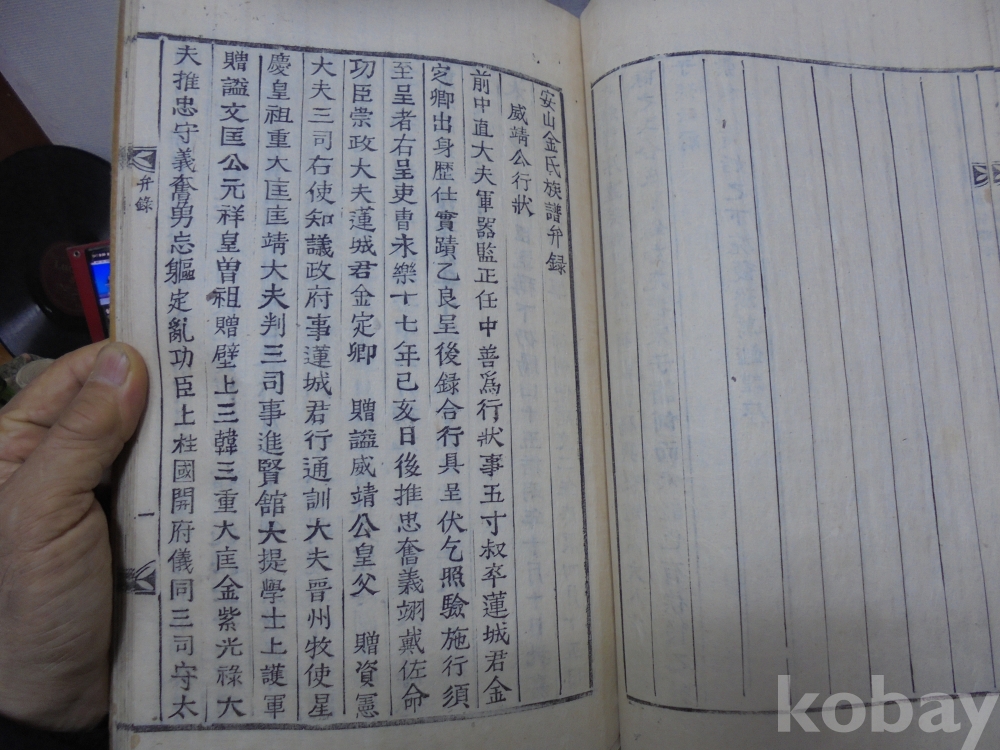 安山金氏族譜弁録
威靖公行狀
前中直大夫軍器監正任中善爲行狀事五寸叔卒蓮城君金
定卿出身歴仕實蹟乙良呈後録合行具呈伏乞照驗施行須
至呈者右呈吏曹永樂十七年已亥日後推忠奮義翊戴佐命
功臣崇政大夫蓮城君金定卿 贈謚威靖公皇父 贈資憲
大夫三司右使知議政府事蓮城君行通訓大夫晉州牧使星
慶皇祖重大匡匡靖大夫判三司事進賢舘大提學士上護軍
贈謚文匡公元祥皇曽祖贈壁上三韓三重大匡金紫光祿大
夫推忠守義奮勇忘軀定亂功臣上柱國開府儀同三司守太
弁錄
一
kobay